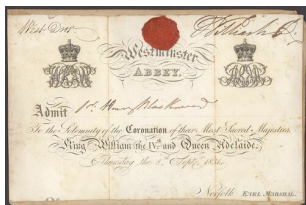 West Door
Westminster
ABBEY.
Admit
To the Solemnity of the Coronation of their Most Sacred Majesties
King William the IVth and Queen Adelaide.
Thursday the 8th Septr. 1831.
Norfolk EARL MARSHAL.